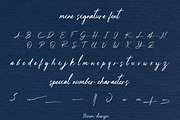 mene segnature font
A B C D E F G H I J K L M
N O P Q R S T U V W X Y Z
a b c d e f g h i j k l m n o p q r s t u v w x y z
special number characters